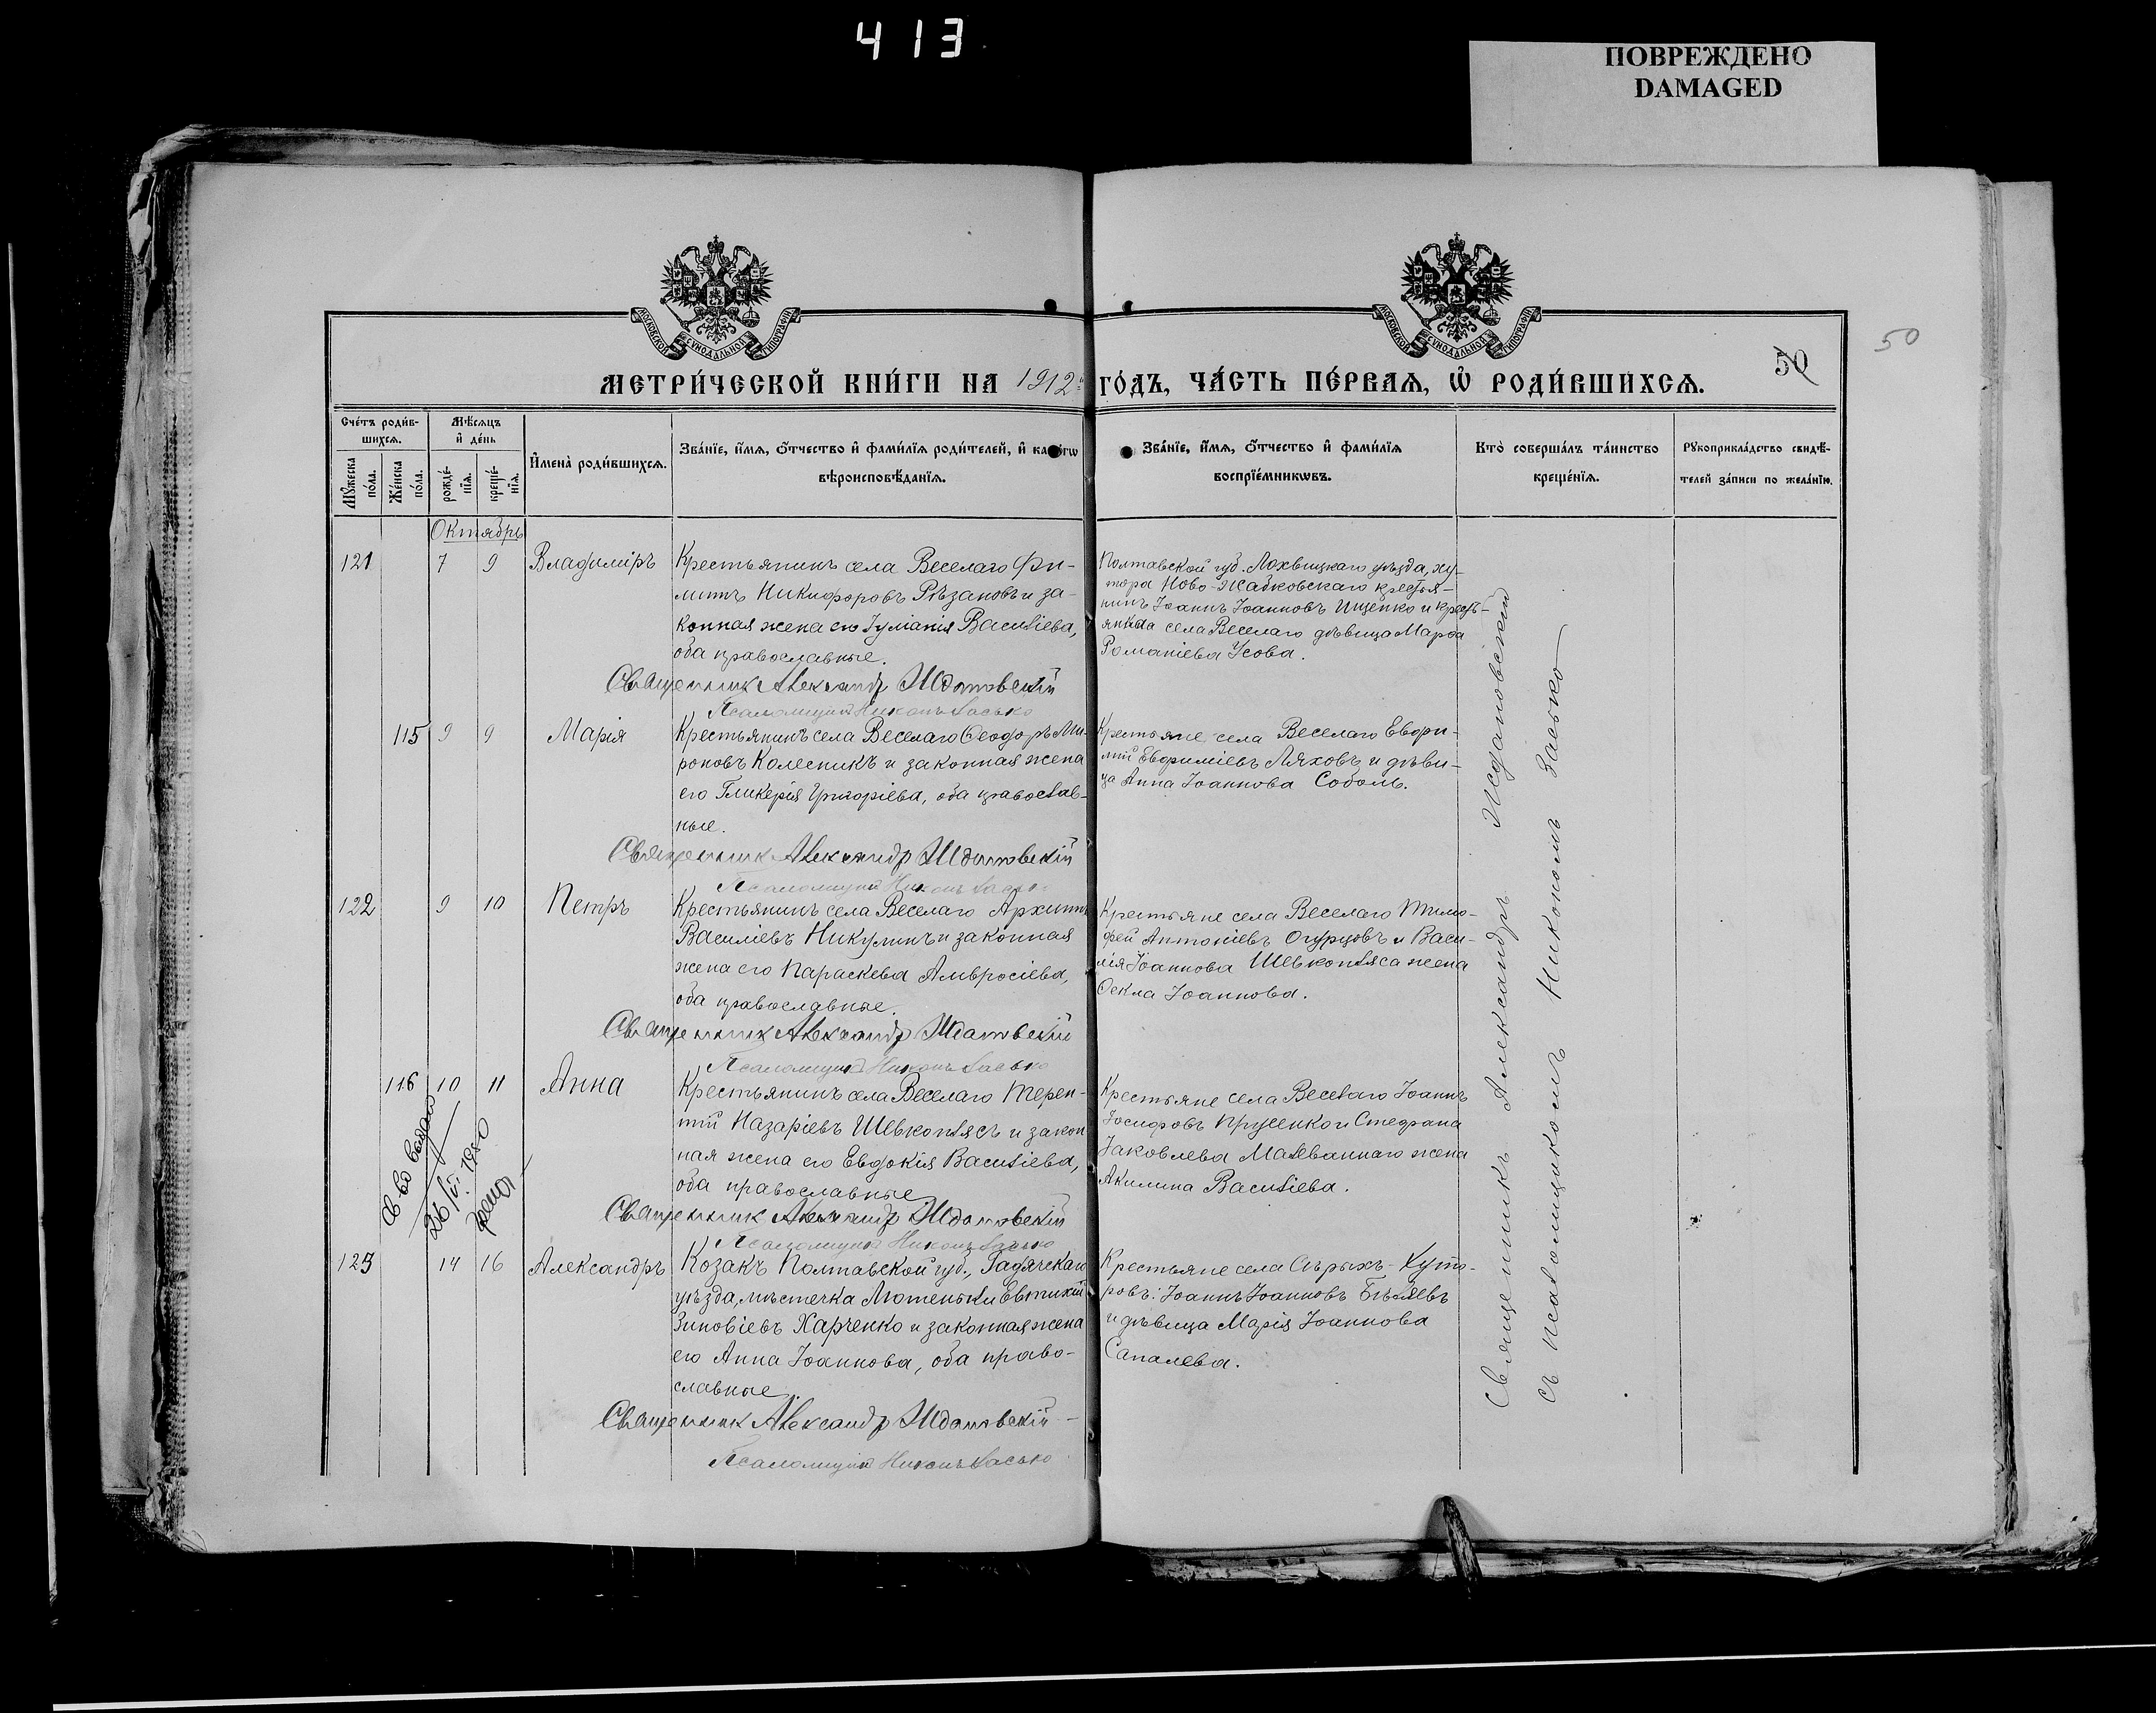 413
ПОВРЕЖДЕНО
DAMAGED
МОСКОВСКОЙ СУНОДАЛЬНОЙ ТИПОГРАФІИ
МОСКОВСКОЙ СУНОДАЛЬНОЙ ТИПОГРАФІИ
50
50
МЕТРИ́ЧЕСКОЙ КНИ́ГИ НА 1912 ГО́ДЪ, ЧА́СТЬ ПЕ́РВАѦ, Ѡ҆ РОДИ́ВШИХСѦ.
Сче́тъ роди́в-
шихсѧ.
Мꙋ́жеска по́ла.
Же́нска по́ла.
Мѣ́сѧцъ
и҆ де́нь
рожде́-
нїѧ.
креще́-
нїѧ.
И҆мена̀ роди́вшихсѧ.
Зва́нїе, и҆́мѧ, ѻ҆́тчество и҆ фами́лїѧ роди́телей, и҆ како́гѡ
вѣроисповѣ́данїѧ.
Зва́нїе, и҆́мѧ, ѻ҆́тчество и҆ фами́лїѧ
воспрїе́мникѡвъ.
Кто̀ соверша́лъ та́инство
креще́нїѧ.
Рꙋкоприкла́дство свидѣ́-
телей за́писи по жела́нїю.
Октябрь
121 7 9 Владиміръ
Крестьянинъ села Веселаго Фи-
липъ Никифоровъ Рѣзановъ и за-
конная жена его Іуліанія Василіева,
оба православные.
Священникъ Александръ Ждановскій
Псаломщикъ Никонъ Засько
Полтавской губ. Лохвицкаго уѣзда, ху-
тора Ново-Жабковскаго крестья-
нинъ Іоаннъ Іоанновъ Ищенко и кресть-
янка села Веселаго дѣвица Марѳа
Романіева Усова.
115 9 9 Марія
Крестьянинъ села Веселаго Ѳеодоръ Ми-
роновъ Колесникъ и законная жена
его Гликерія Григоріева, оба православ-
ные.
Священникъ Александръ Ждановскій
Псаломщикъ Никонъ Засько
Крестьяне села Веселаго Евфи-
мій Евфиміевъ Ляховъ и дѣви-
ца Анна Іоаннова Соболь.
122 9 10 Петръ
Крестьянинъ села Веселаго Архиппъ
Василіевъ Никулинъ и законная
жена его Параскева Амвросіева,
оба православные.
Священникъ Александръ Ждановскій
Псаломщикъ Никонъ Засько
Крестьяне села Веселаго Тимо-
фей Антоніевъ Огурцовъ и Васи-
лія Іоаннова Шевкопляса жена
Ѳекла Іоаннова.
116 10 11 Анна
Крестьянинъ села Веселаго Терен-
тій Назаріевъ Шевкоплясъ и закон
ная жена его Евдокія Василіева,
оба православные
Священникъ Александръ Ждановскій
Псаломщикъ Никонъ Засько
Крестьяне села Веселаго Іоаннъ
Іосифовъ Прусенко и Стефана
Іаковлева Малеваннаго жена
Акилина Василіева.
Св во выдано
123 14 16 Александръ
Козакъ Полтавской губ., Гадячскаго
уѣзда, мѣстечка Лютеньки Евтихій
Зиновіевъ Харченко и законная жена
его Анна Іоаннова, оба право-
славные.
Священникъ Александръ Ждановскій
Псаломщикъ Никонъ Засько
Крестьяне села Сѣрыхъ-Хуто-
ровъ: Іоаннъ Іоанновъ Бѣляевъ
и дѣвица Марія Іоаннова
Сапалева.
Священникъ Александръ Ждановскій
съ псаломщикомъ Никономъ Засько